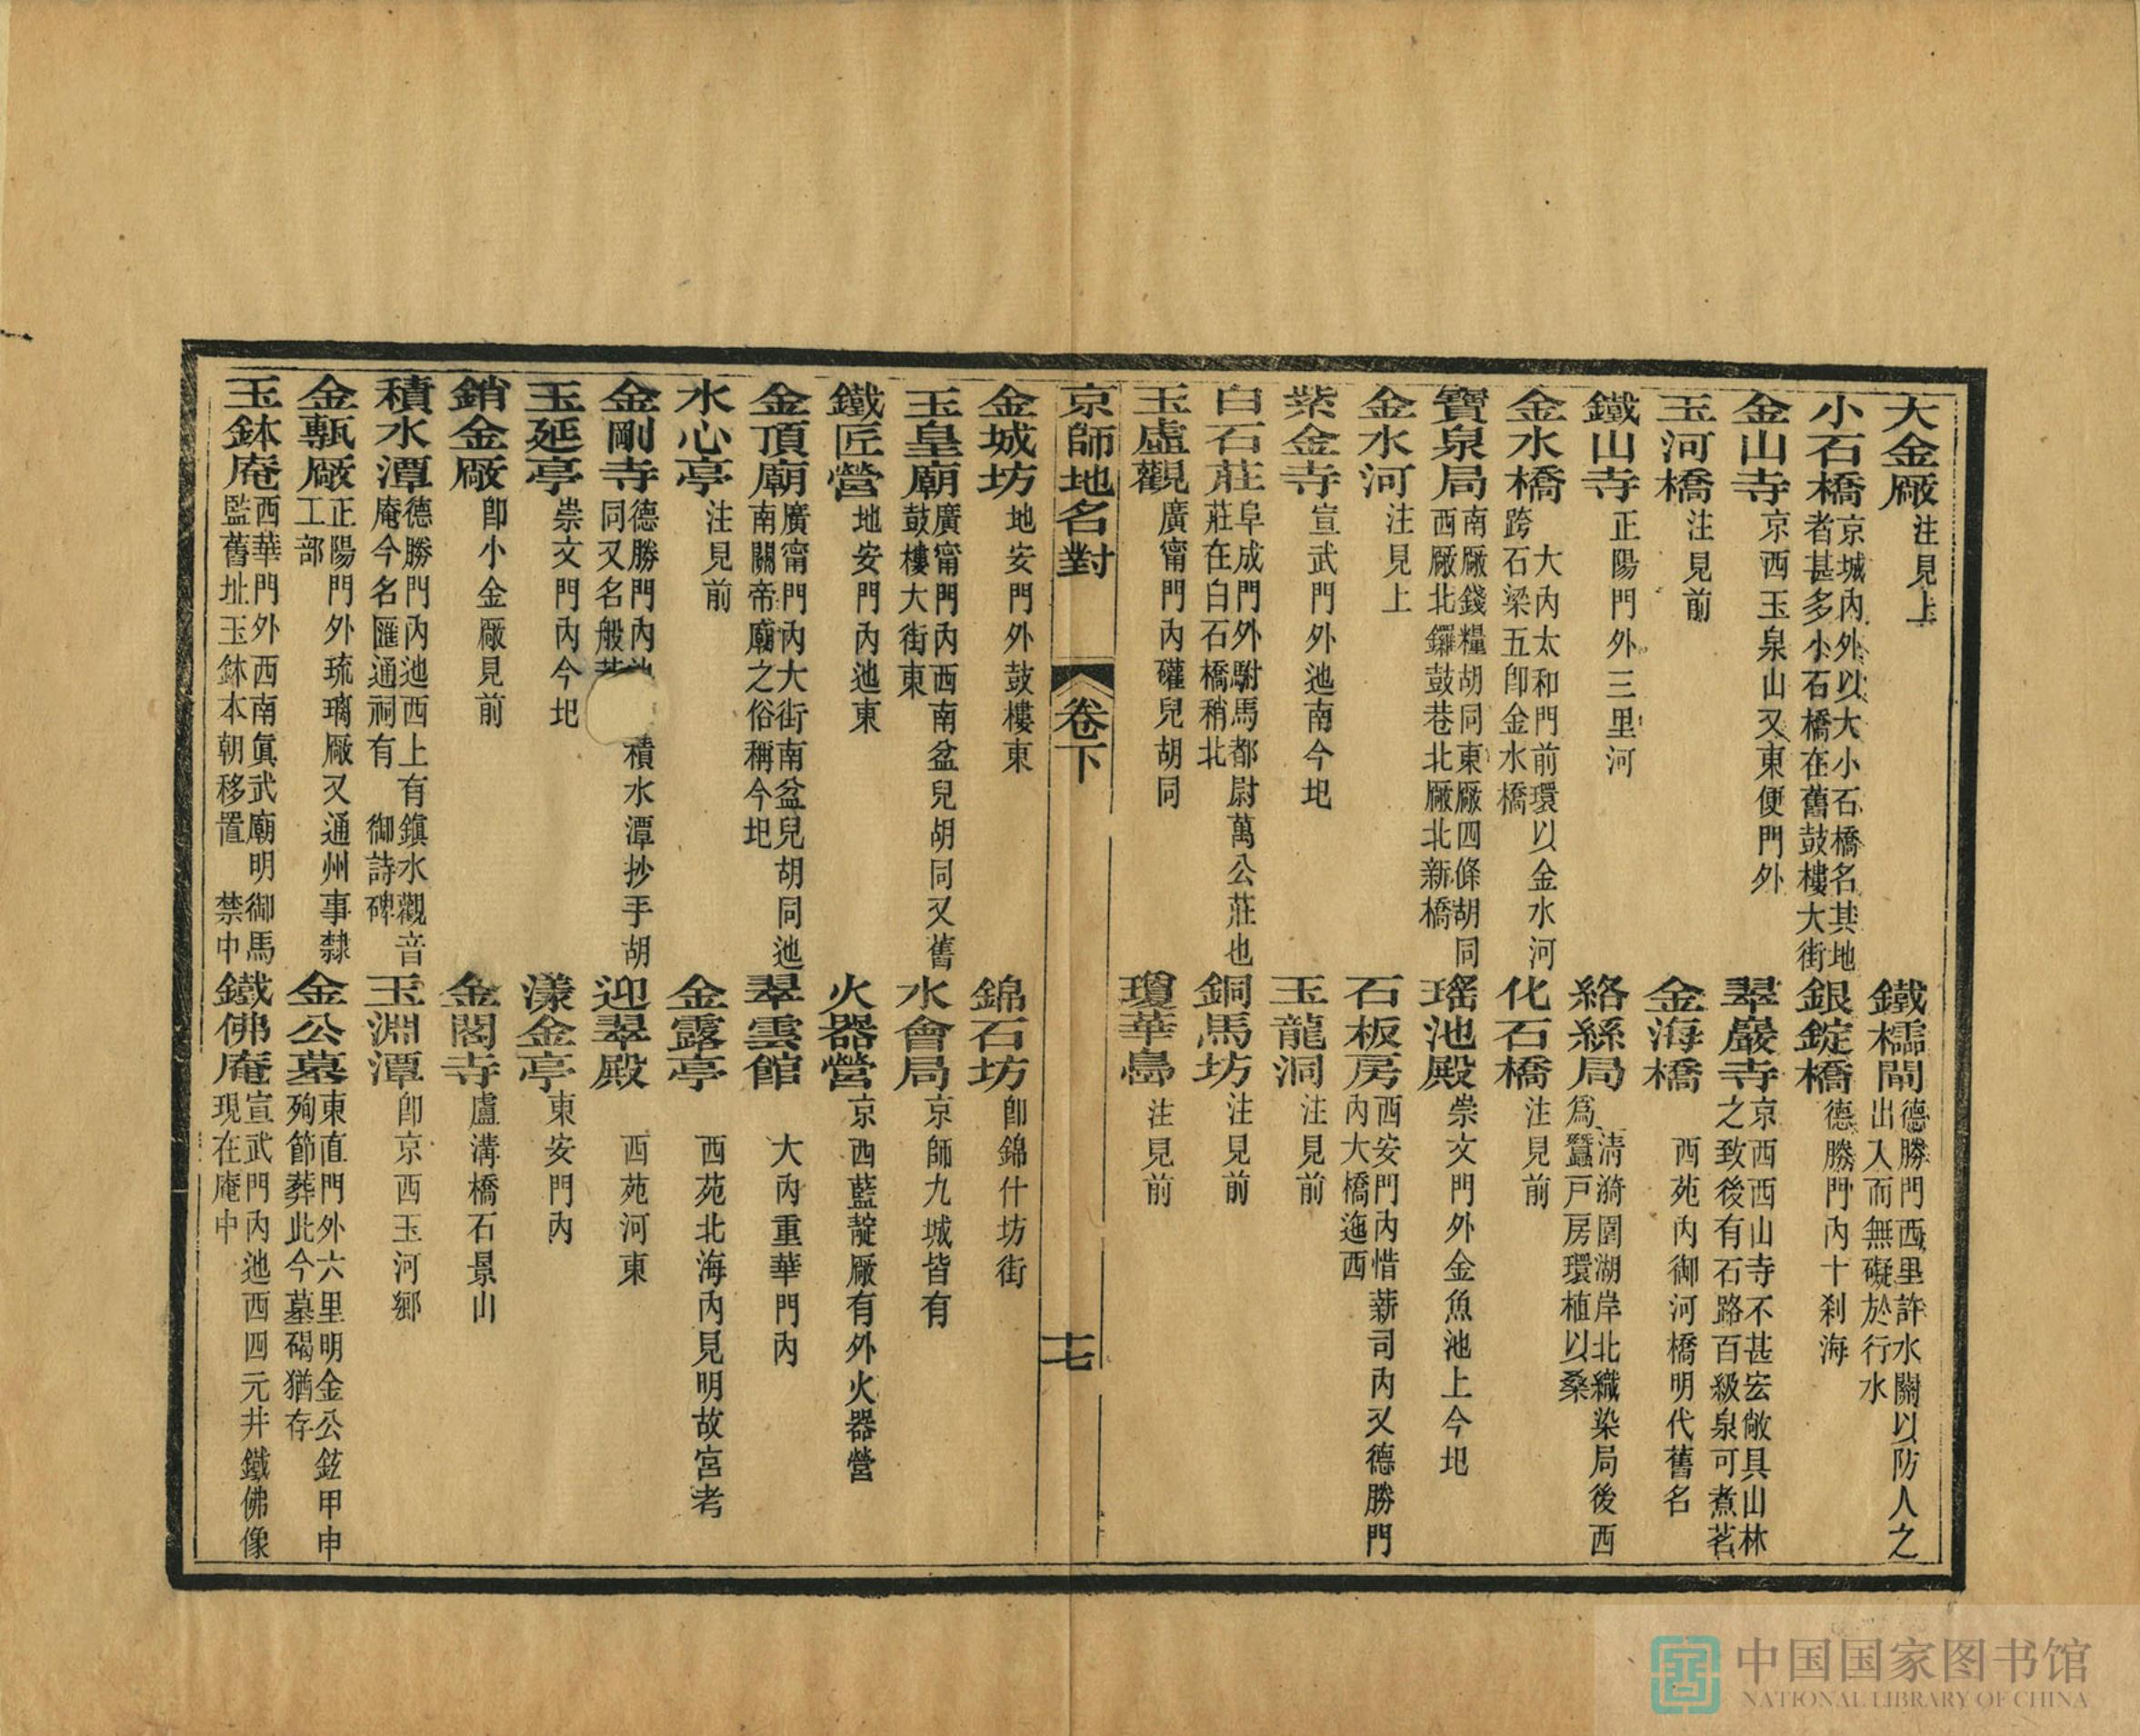 大金廠注見上 鐵檽閘德勝門西里許水關以防人之出入而無礙於行水
小石橋京城內外以大小石橋名其地者甚多小石橋在舊鼓樓大街 銀錠橋德勝門內十刹海
金山寺京西玉泉山又東便門外 翠巖寺京西西山寺不甚宏敞具山林之致後有石路百級泉可煮茗
玉河橋注見前 金海橋西苑內御河橋明代舊名
鐵山寺正陽門外三里河 絡絲局清漪園湖岸北織染局後西爲蠶戸房環植以桑
金水橋大內太和門前環以金水河跨石梁五卽金水橋 化石橋注見前
寶泉局南廠錢糧胡同東廠四條胡同西廠北鑼鼓巷北廠北新橋 瑤池殿崇文門外金魚池上今圯
金水河注見上 石板房西安門內惜薪司內又德勝門內大橋迤西
紫金寺宣武門外池南今圯 玉龍洞注見前
白石莊阜成門外駙馬都尉萬公莊也莊在白石橋稍北 銅馬坊注見前
玉虛觀廣甯門內礶兒胡同 瓊華島注見前
京師地名對 卷下 十七
金城坊地安門外鼓樓東 錦石坊卽錦什坊街
玉皇廟廣甯門內西南盆兒胡同又舊鼓樓大街東 水會局京師九城皆有
鐵匠營地安門內池東 火器營京西藍靛廠有外火器營
金頂廟廣甯門內大街南盆兒胡同池南關帝廟之俗稱今圯 翠雲館大內重華門內
水心亭注見前 金露亭西苑北海內見明故宮考
金剛寺德勝門內積水潭抄手胡同又名般 迎翠殿西苑河東
玉延亭崇文門內今圯 漾金亭東安門內
銷金廠卽小金廠見前 金閣寺盧溝橋石景山
積水潭德勝門內池西上有鎮水觀音庵今名匯通祠有御詩碑 玉淵潭卽京西玉河鄉
金甎廠正陽門外琉璃廠又通州事隸工部 金公墓東直門外六里明金公鉉甲申殉節葬此今墓碣猶存
玉鉢庵西華門外西南眞武廟明御馬監舊址玉鉢本朝移置禁中 鐵佛庵宣武門內池西四元井鐵佛像現在庵中
中国国家图书馆
NATIONAL LIBRARY OF CHINA